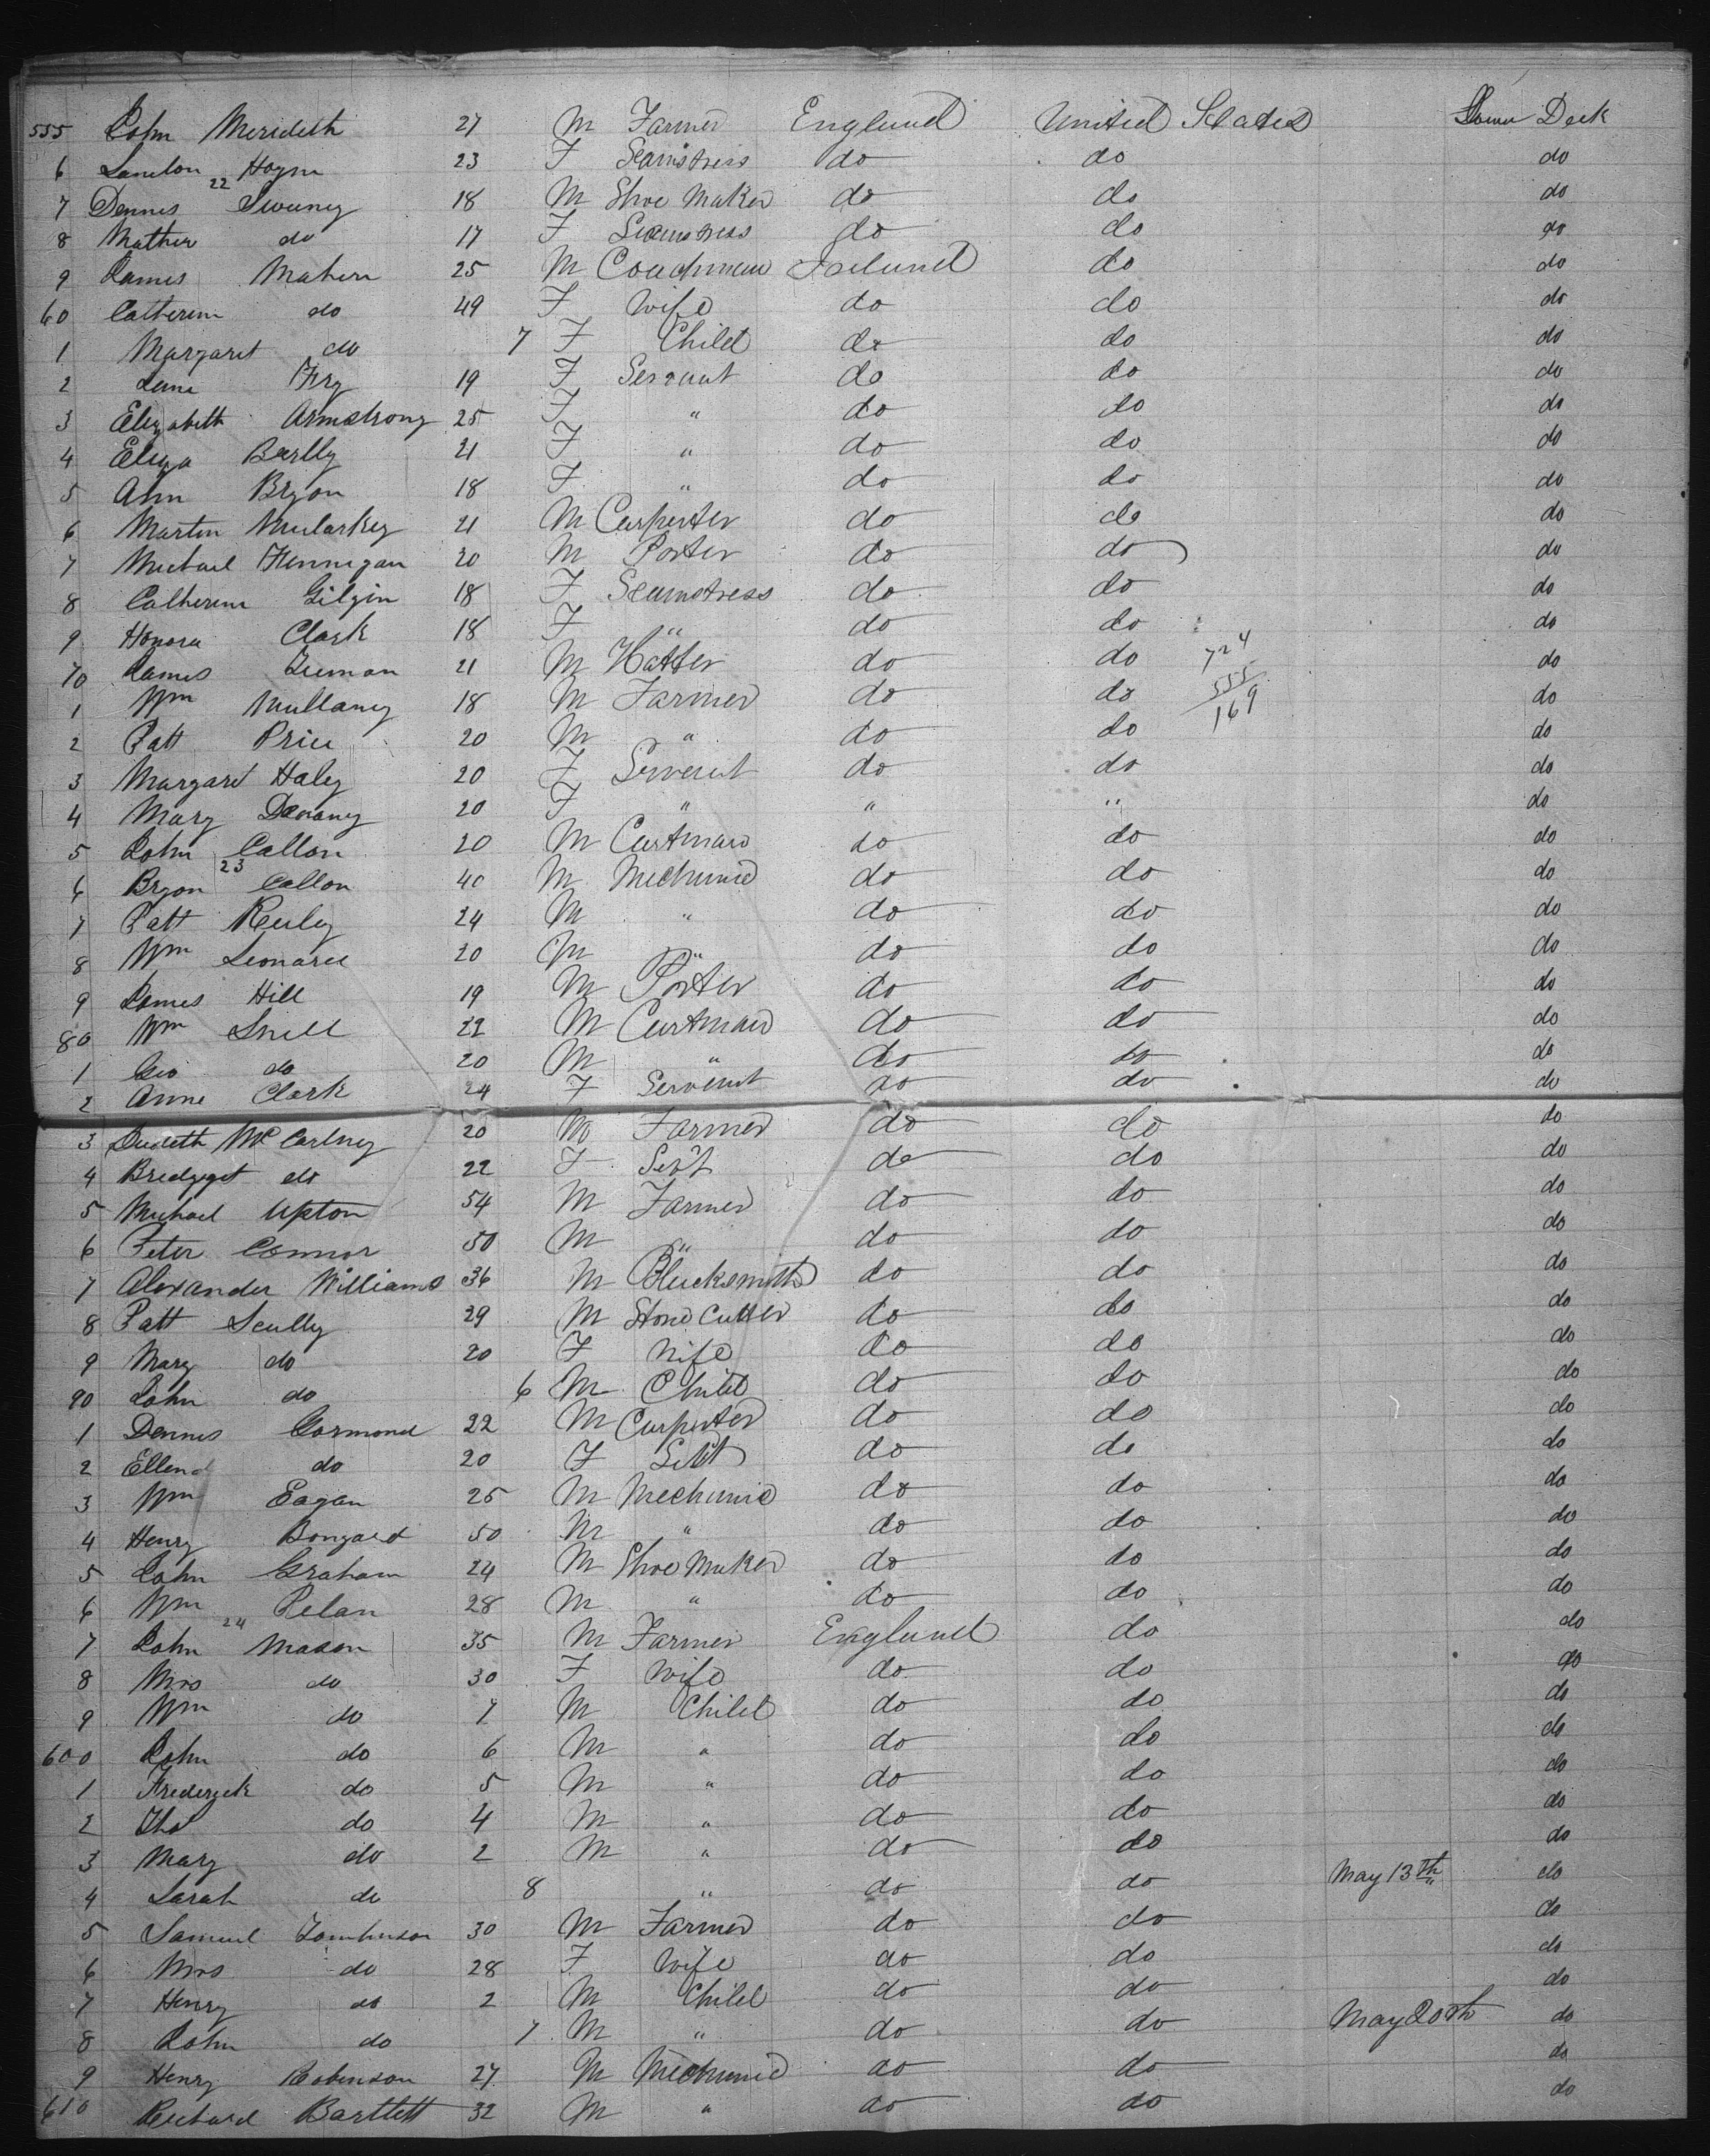 555 John Meridith 27 M Farmer England United States Lower Deck
6 Hoyne 23 F Seamstress do do do
22
7 Dennis Sweeney 18 M Shoe Maker do do do
8 Mather do 17 F Seamstress do do do
9 James Mahern 25 M Coachman Ireland do do
60 Catherine do 49 F Wife do do do
1 Margaret do 7 F Child do do do
2 Jane Fry 19 F Servant do do do
3 Elizabeth Armstrong 25 F " do do do
4 Eliza 21 F " do do do
5 Ann Bryon 18 F " do do do
6 Martin Mularkey 21 M Carpenter do do do
7 Michael Flennigan 20 M Porter do do do
8 Catherine Gilgin 18 F Seamstress do do do
9 Honora Clark 18 F " do do do
70 James 21 M Hatter do do do
724
555
169
1 Wm Mullaney 18 M Farmer do do do
2 Patt Price 20 M " do do do
3 Margaret Haley 20 F Servent do do do
4 Mary Devany 20 F " " " do
5 John Callon 20 M Cartman do do do
23
6 Bryon Callon 40 M Mechanic do do do
7 Patt Reily 24 M " do do do
8 Wm Leonard 20 M " do do do
9 James Hill 19 M Porter do do do
80 Wm Snell 22 M Cartman do do do
1 Geo do 20 M " do do do
2 Anne Clark 24 F Servent do do do
3 Judith McCartney 20 M Farmer do do do
4 Bredgget do 22 F Servt do do do
5 Michael Upton 54 M Farmer do do do
6 Peter Connor 50 M " do do do
7 Alexander Williams 36 M Blacksmith do do do
8 Patt Scully 29 M Stone Cutter do do do
9 Mary do 20 F Wife do do do
90 John do 6 M Child do do do
1 Dennis Gormond 22 M Carpenter do do do
2 Ellen do 20 F Servt do do do
3 Wm Eagan 25 M Mechanic do do do
4 Henry 50 M " do do do
5 John Graham 24 M Shoe Maker do do do
6 Wm Pelan 28 M " do do do
24
7 John Mason 35 M Farmer England do do
8 Mrs do 30 F Wife do do do
9 Wm do 7 M Child do do do
600 John do 6 M " do do do
1 Frederyck do 5 M " do do do
2 Tho do 4 M " do do do
3 Mary do 2 M " do do do
4 Sarah do 8 " do do May 13th do
5 Samuel Tomlinson 30 M Farmer do do do
6 Mrs do 28 F Wife do do do
7 Henry do 2 M Child do do do
8 John do 1 M " do do May 20th do
9 Henry Robinson 27 M Mechanic do do do
610 Richard Bartlett 32 M " do do do